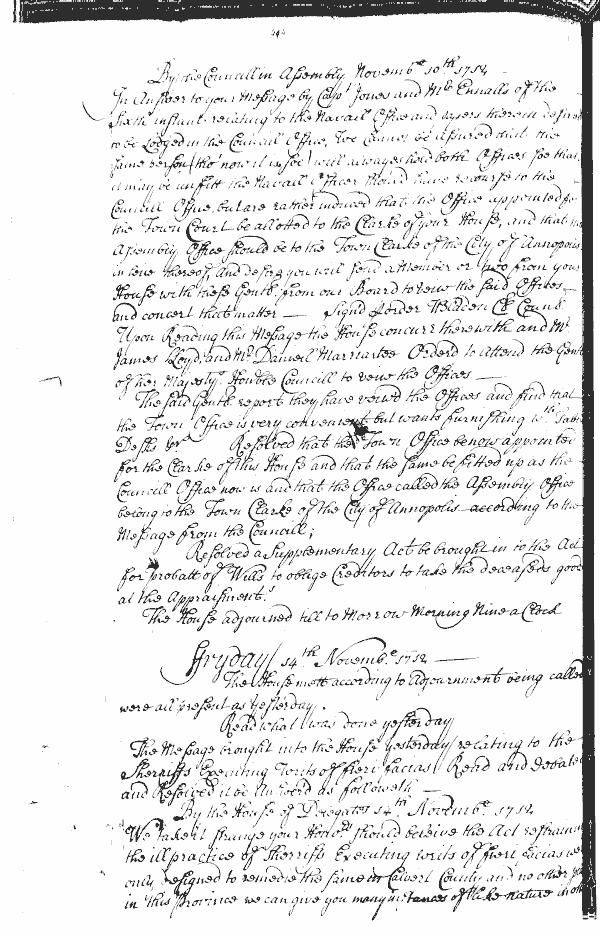 By the Councill in Assembly Novemb.r 10th 1712
In Answer to your Message by Capt Jones and Mr Ennalls of the
Sixth instant relating to the Navall Office and papers therein desired
to be Lodged in the Councill Office, We cannot be assured that the
same person (tho' now it is soe) will alwayes hold both Offices soe that
it may be unfitt the Navall Officer should have recourse to the
Councill Office, but are rather induced that the Office appointed for
the Town Court be allotted to the Clarke of your House, and that
Assembly Office should be to the Town Clarke of the City of Annapolis
in liene thereof, And desire you will send a Member or two from your
House with these Gentl: from our Board to view the said Offices
and concert that matter — Signd p order W Bladen Cl Counl
Upon Reading this Message the House concurr therewith and Mr
James Lloyd and Mr Daniell Marriartee Orderd to attend the Gentl
of her Majestys Honble Councill to view the Offices —
The said Gentl: report they have viewd the Offices and find that
the Town Office is very convenient but wants furnishing wth Table
Desks &c Resolved that the Town Office be now appointed
for the Clarke of this House and that the same be fitted up as the
Councill Office now is and that the Office called the Assembly Office
belong to the Town Clarke of the City of Annopolis according to the
Message from the Councill;
Resolved a Supplementary Act be brought in to the Act
for probatt of Wills to oblige Creditors to take the deceaseds goods
at the Appraisment.
The House adjourned till to Morrow Morning Nine a Clock
Fryday 14th Novemb.r 1712 —
The House mett according to Adjournment being called
were all present as Yesterday.
Read what was done yesterday
The Message brought into the House yesterday relating to the
Sherriffs Executing Writs of fieri facias Read and debated
and Resolved it be Answerd as followeth —
By the House of Delegates 14th Novemb.r 1712
We take it strange your Honrs should beleive the Act restraining
the ill practice of Sherriffs Executing writs of fieri facias were
only designed to remedie the same in Calvert County and no other
in this Province we can give you many instances of the like nature in